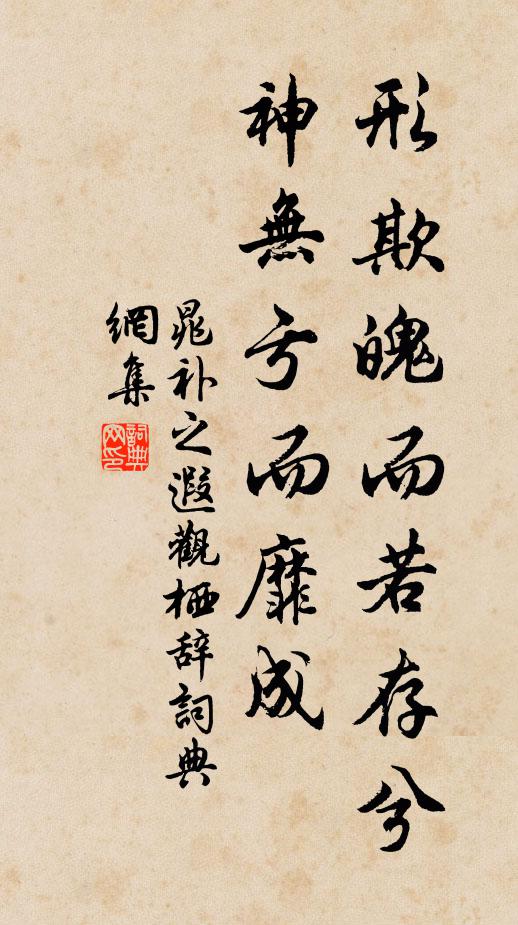 形欺魄而若存兮
神無亏而靡成
晁补之遐觀栖辞詞典
網集
詞典
网印